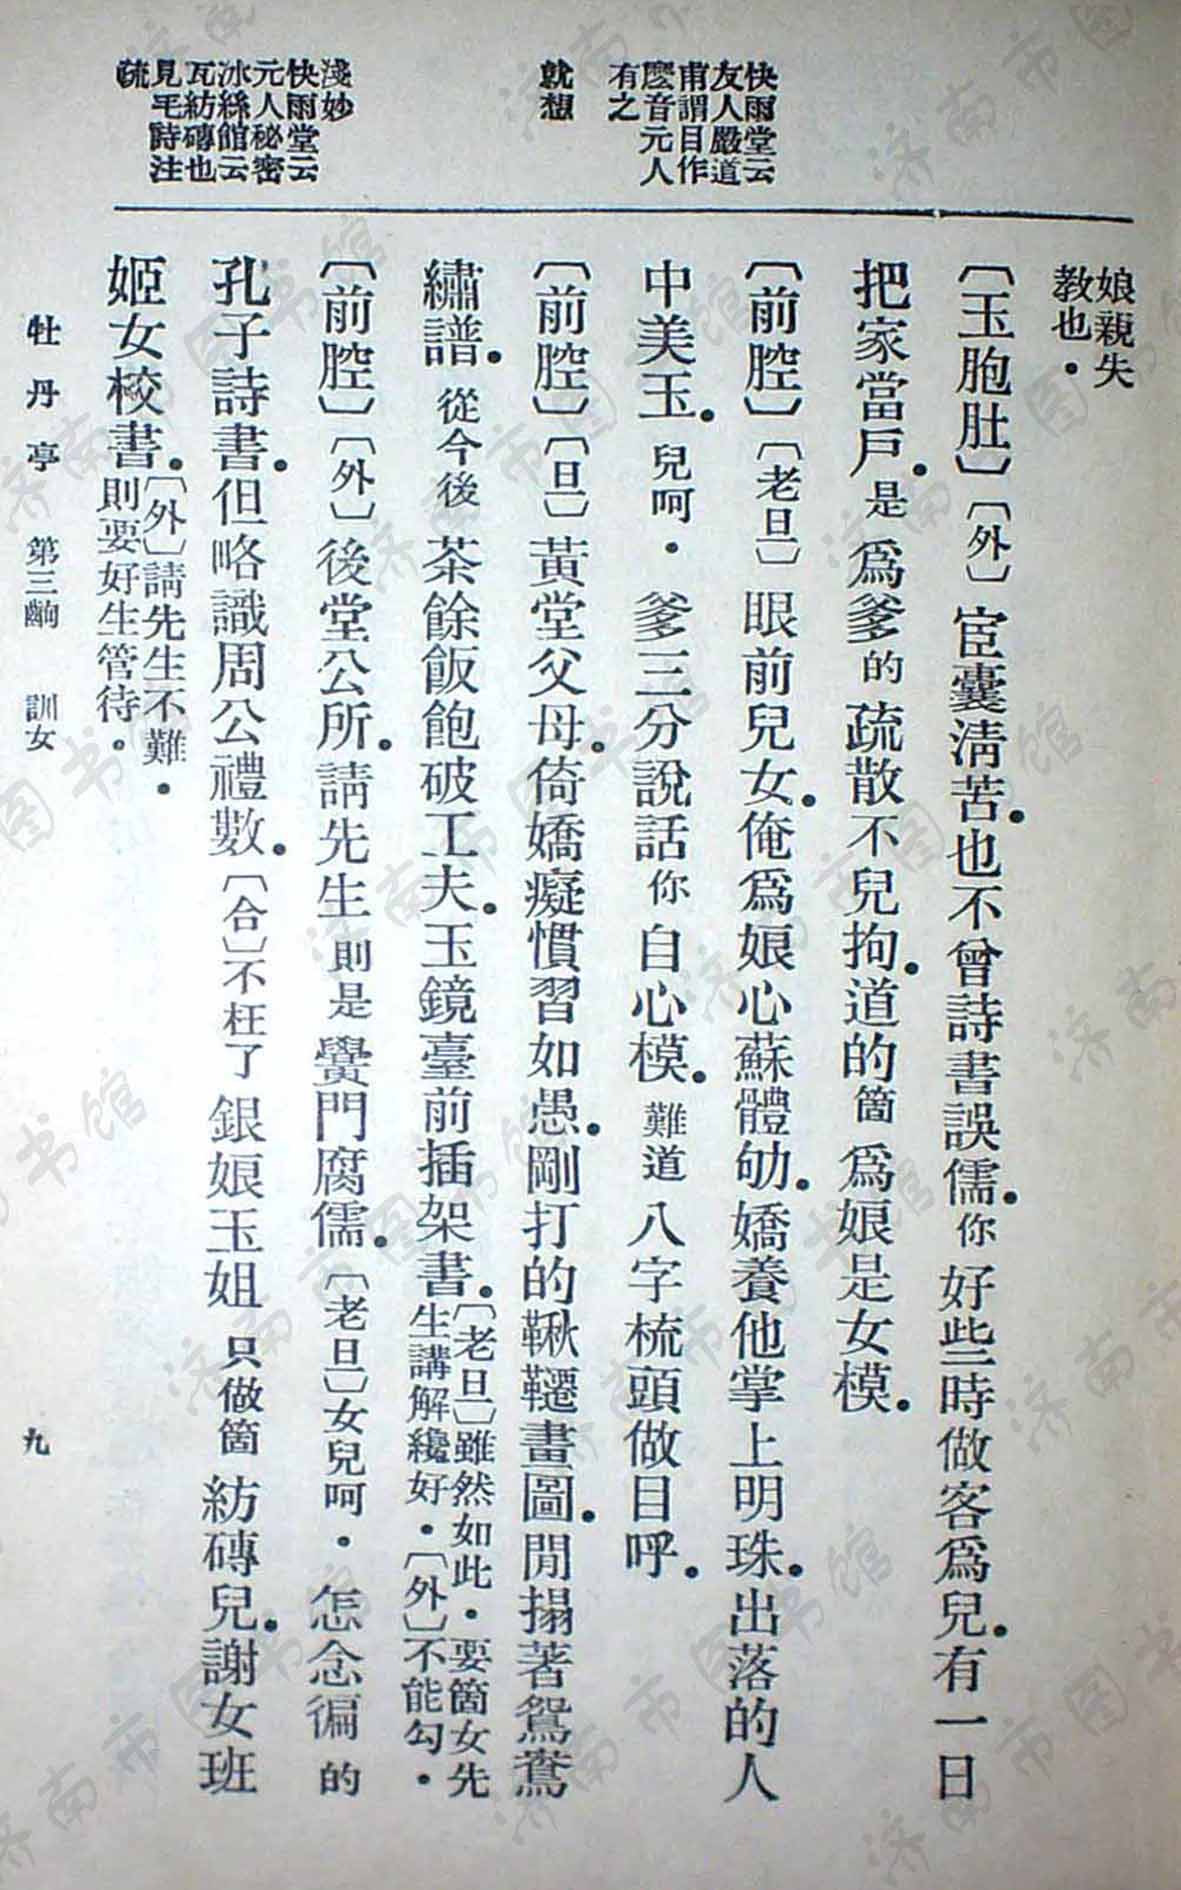 快雨堂云
友人嚴道
甫謂目作
麽音元人
有之
就想
淺妙
快雨堂云
元人秘密
冰絲館云
瓦紡磚也
見毛詩注
疏
娘親失
教也．
〔玉胞肚〕〔外〕宦囊清苦．也不曾詩書誤儒．你好些時做客爲兒．有一日
把家當戶．是爲爹的疏散不兒拘．道的箇爲娘是女模．
〔前腔〕〔老旦〕眼前兒女．俺爲娘心蘇體劬．嬌養他掌上明珠．出落的人
中美玉．兒呵．爹三分說話你自心模．難道八字梳頭做目呼．
〔前腔〕〔旦〕黃堂父母．倚嬌癡慣習如愚．剛打的鞦韆畫圖．閒搨著鴛鴦
繡譜．從今後茶餘飯飽破工夫．玉鏡臺前插架書．〔老旦〕雖然如此．要箇女先
生講解纔好．〔外〕不能勾．
〔前腔〕〔外〕後堂公所．請先生則是黌門腐儒．〔老旦〕女兒呵．怎念徧的
孔子詩書．但略識周公禮數．〔合〕不枉了銀娘玉姐只做箇紡磚兒．謝女班
姬女校書．〔外〕請先生不難．
則要好生管待．
牡丹亭 第三齣 訓女 九
济南市图书馆